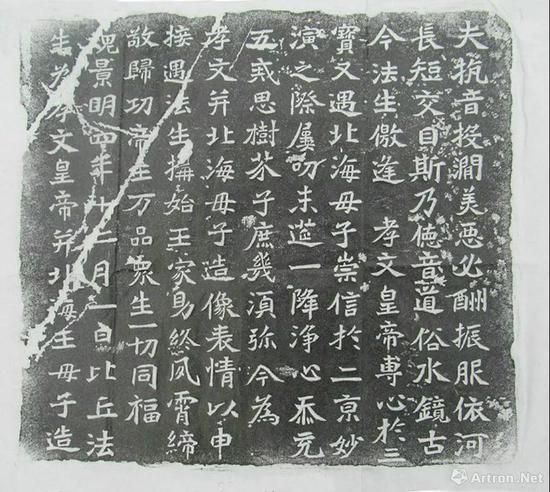 夫抗音投澗美惡必酬振服依河
長短交目斯乃德音道俗水鏡古
今法生儌逢 孝文皇帝專心於三
寶又遇北海母子崇信於二京妙
演之際屢叨末筵一降淨心忝充
五戒思樹芥子庶幾須弥今為
孝文并北海母子造像表情以申
接遇法生構始王家易終夙霄締
敬歸功帝王万品眾生一切同福
魏景明四年十二月一日比丘法
生為孝文皇帝并北海王母子造
Artron.Net